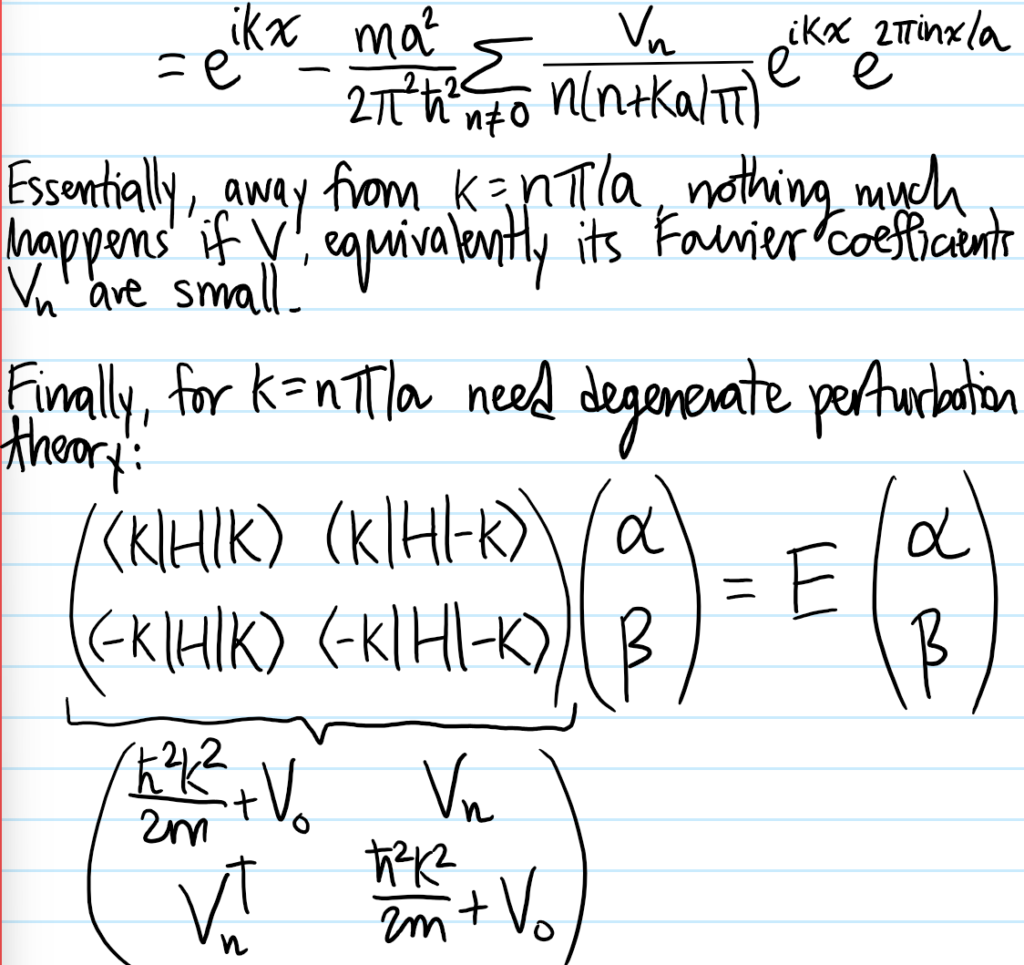 = e^{ikx} - \frac{ma^2}{2\pi^2\hbar^2} \sum_{n≠0} \frac{V_n}{n(n+ka/\pi)} e^{ikx} e^{2\pi inx/a}
Essentially, away from k=nπ/a, nothing much
happens if V, equivalently its Fourier coefficients
V_n are small.
Finally, for k=nπ/a need degenerate perturbation
theory:
\begin{pmatrix} ⟨k|H|k⟩ & ⟨k|H|-k⟩ \\ ⟨-k|H|k⟩ & ⟨-k|H|-k⟩ \end{pmatrix} \begin{pmatrix} α \\ β \end{pmatrix} = E \begin{pmatrix} α \\ β \end{pmatrix}
\begin{pmatrix} \frac{\hbar^2k^2}{2m} + V_0 & V_n \\ V_n^† & \frac{\hbar^2k^2}{2m} + V_0 \end{pmatrix}